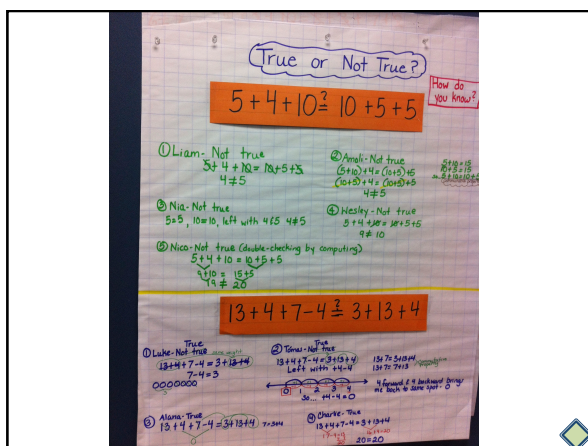 True or Not True?
5+4+10 ≟ 10+5+5
How do
you know?
① Liam- Not true
5+4+10 = 10+5+5
4≠5
② Amoli- Not true
(5+10)+4=(10+5)+5
(10+5)+4=(10+5)+5
4≠5
5+10=15
10+5=15
③ Nia- Not true
5=5, 10=10, left with 4&5 4≠5
④ Wesley- Not true
5+4+10=10+5+5
9≠10
⑤ Nico- Not true (double-checking by computing)
5+4+10 = 10+5+5
9+10 = 15+5
19 ≠ 20
13+4+7-4 ≟ 3+13+4
True
① Luke- Not true
13+4+7-4=3+13+4
7-4=3
True
② Not true
13+4+7-4=3+13+4
Left with +4-4
0 1 2 3 4
So... +4-4=0
13+7=7+13
4 forward & 4 backward brings
me back to same spot- 0
③ Alana- True
13+4+7-4=3+13+4
7=3+4
④ Charlie- True
13+4+7-4=3+13+4
20=20